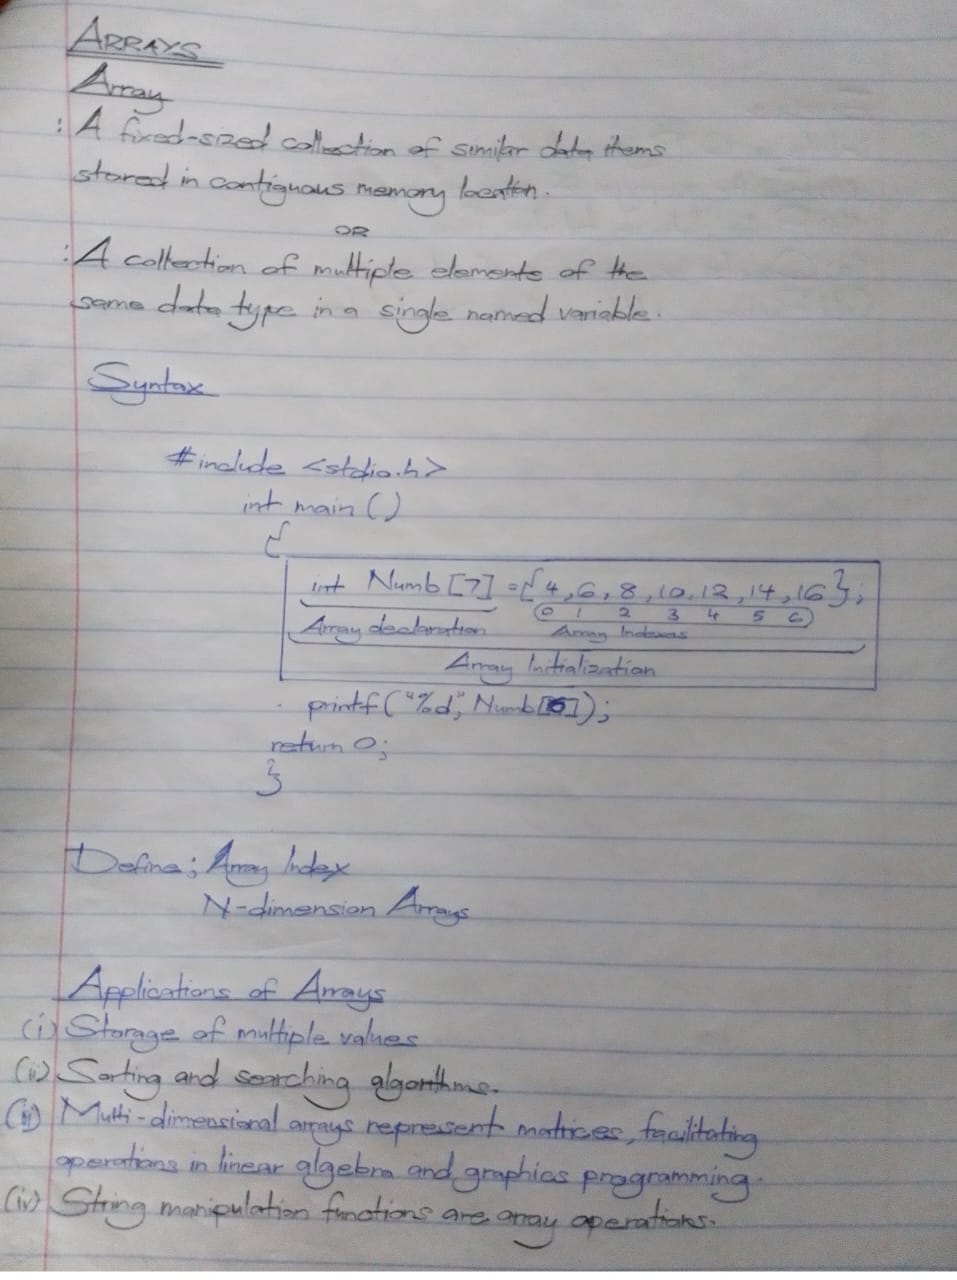 ARRAYS
Array
: A fixed-sized collection of similar data items
stored in contiguous memory location.
OR
: A collection of multiple elements of the
same data type in a single named variable.
Syntax
#include <stdio.h>
int main ()
{
int Numb [7] = {4,6,8,10,12,14,16};
0 1 2 3 4 5 6
Array declaration Array Indexes
Array Initialization
printf("%d", Numb[5]);
return 0;
}
Define; Array Index
N-dimension Arrays
Applications of Arrays
(i) Storage of multiple values
(ii) Sorting and searching algorithms.
(iii) Multi-dimensional arrays represent matrices, facilitating
operations in linear algebra and graphics programming.
(iv) String manipulation functions are array operations.